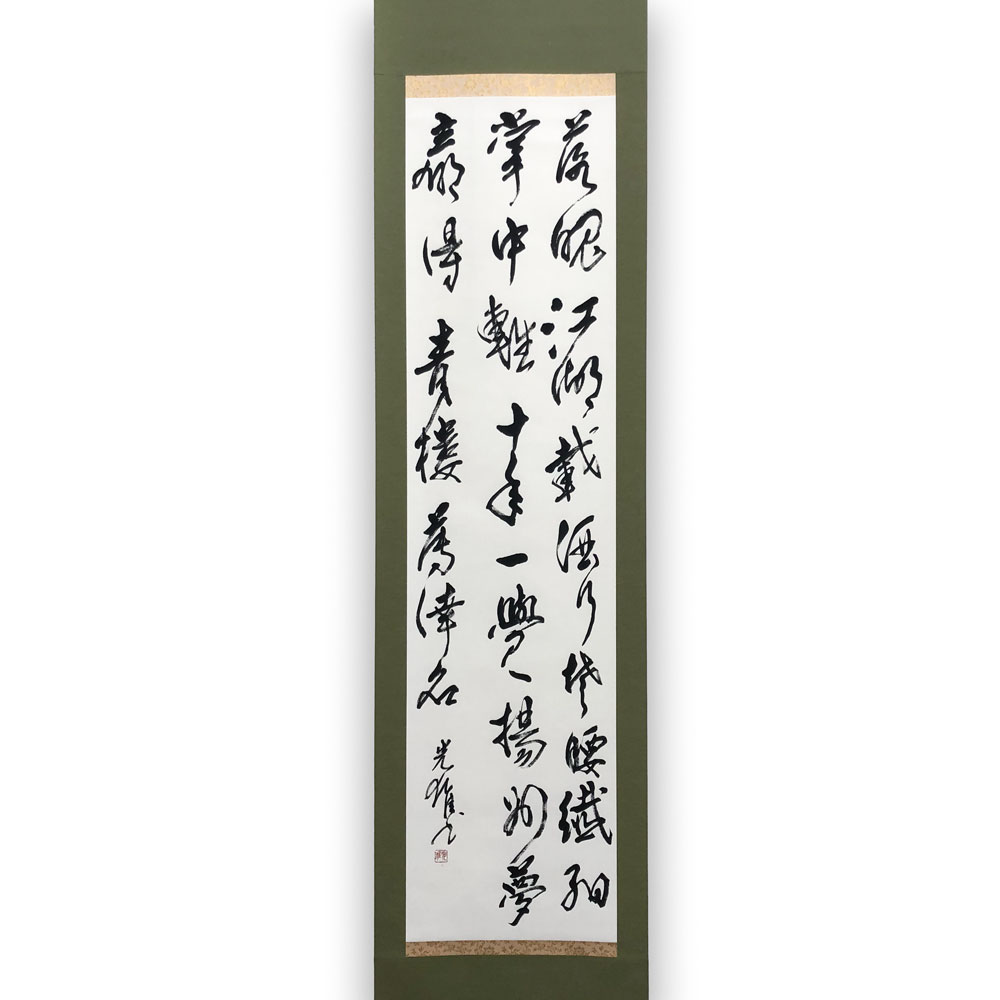 落魄江湖載酒行楚腰纖細
掌中輕十年一覺揚州夢
贏得青樓薄倖名
光